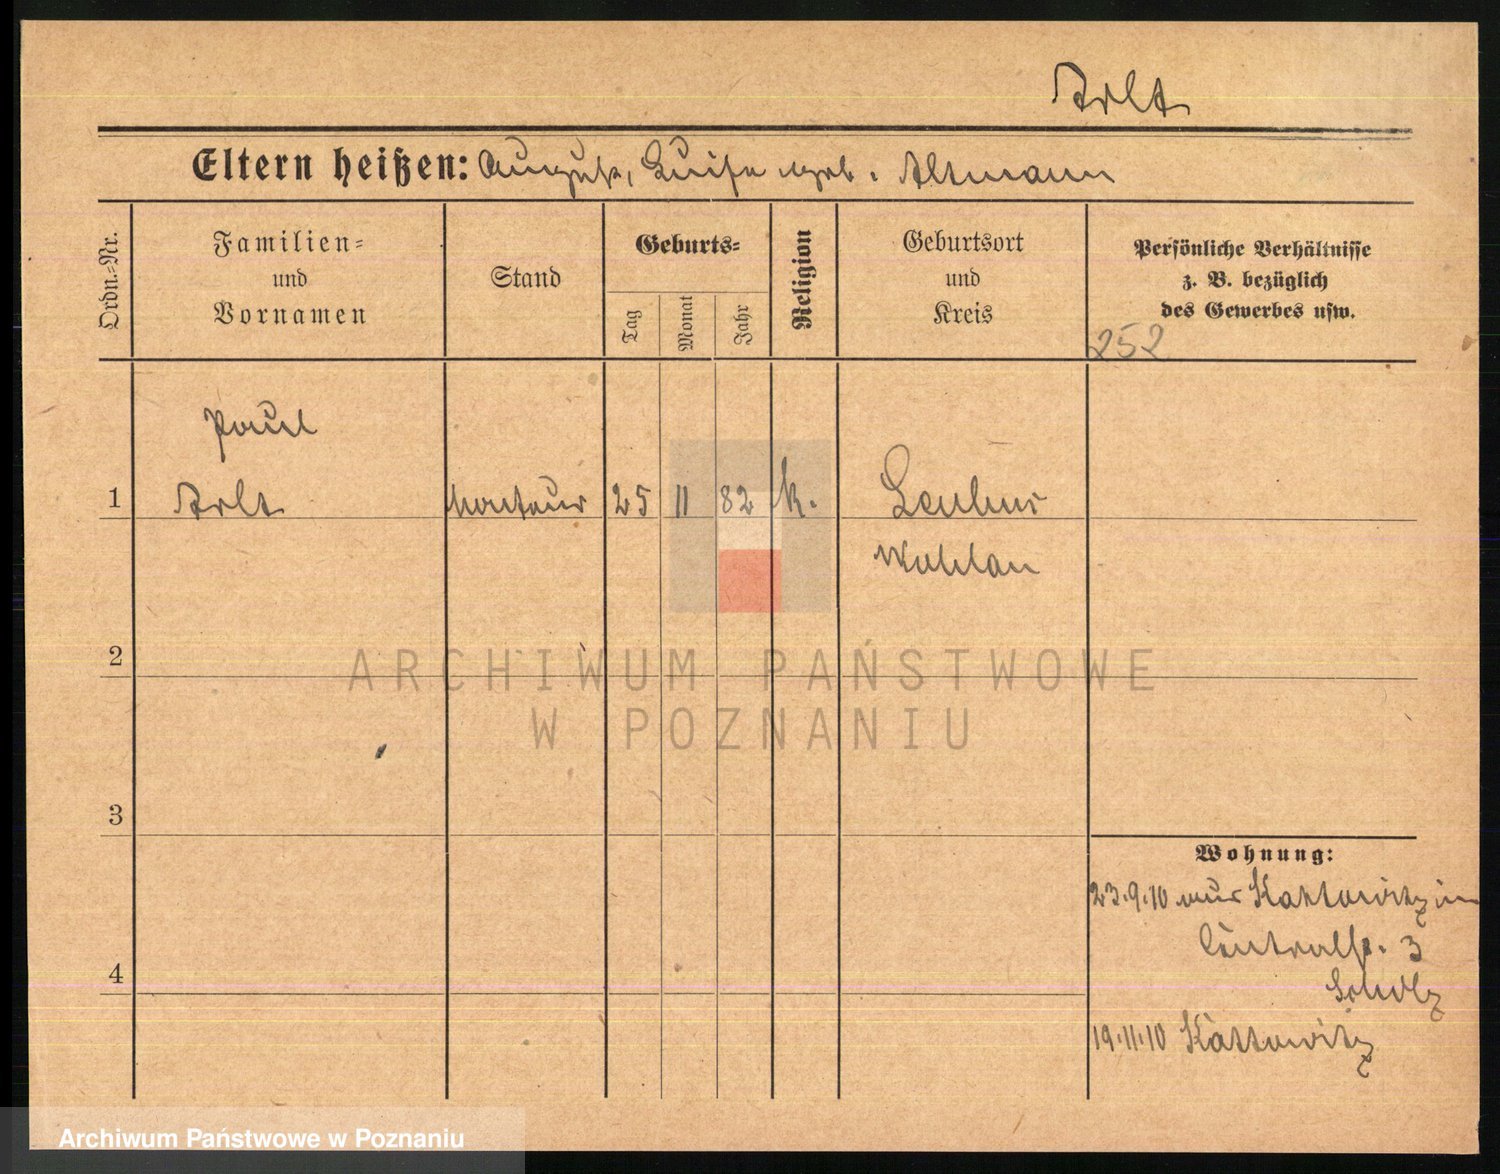 Arlt
Eltern heißen: August, Luise geb. Altmann
Ordn.-Nr.
Familien-
und
Vornamen
Stand
Geburts-
Tag
Monat
Jahr
Religion
Geburtsort
und
Kreis
Persönliche Verhältnisse
z. B. bezüglich
des Gewerbes usw.
252
Paul
1 Arlt Monteur 25 11 82 k. Leubus
Wohlau
2
ARCHIWUM PAŃSTWOWE
W POZNANIU
3
Wohnung:
23.9.10 Kattowitz in
Centralstr. 3
Scholz
4
19.11.10 Kattowitz
Archiwum Państwowe w Poznaniu